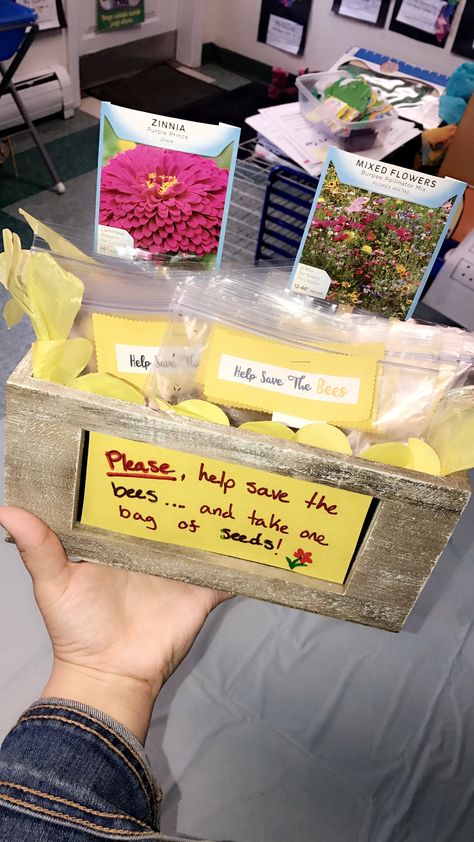 ZINNIA
Purple Prince
ZINIA
MIXED FLOWERS
Burpee Pollinator Mix
FLORES MIXTAS
A Mix
for Every
Pollinator
12-48"
Help Save The
Help Save The Bees
Please, help save the
bees... and take one
bag of seeds!